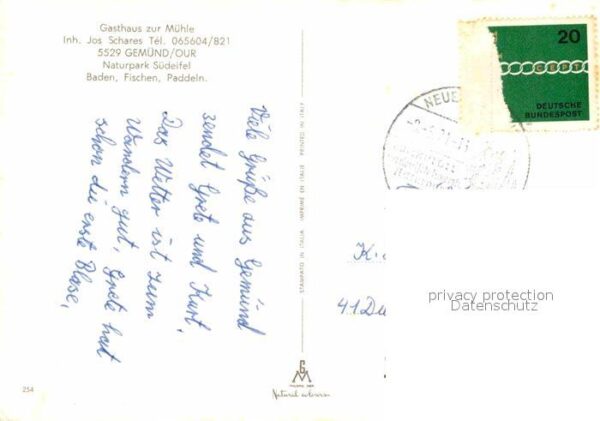 Gasthaus zur Mühle
Inh. Jos Schares Tél. 065604/821
5529 GEMÜND/OUR
Naturpark Südeifel
Baden, Fischen, Paddeln.
Viele Grüße aus Gemünd
sendet Grete und Kurt.
Das Wetter ist zum
Wandern gut, Grete hat
schon die erste Blase,
STAMPATO IN ITALIA IMPRIMÉ EN ITALIE PRINTED IN ITALY
254
20
CEPT
DEUTSCHE
BUNDESPOST
NEUE
K.
41 Du
privacy protection
Datenschutz